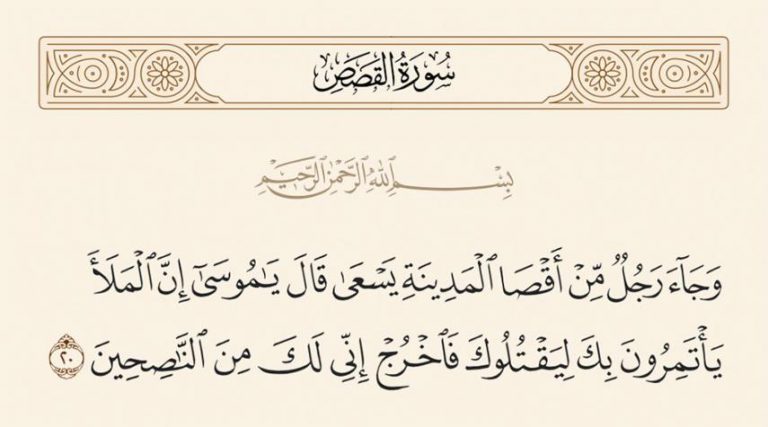 سُورَةُ القَصَصِ
بِسْمِ ٱللَّهِ ٱلرَّحْمَٰنِ ٱلرَّحِيمِ
وَجَآءَ رَجُلٌ مِّنْ أَقْصَا ٱلْمَدِينَةِ يَسْعَىٰ قَالَ يَٰمُوسَىٰٓ إِنَّ ٱلْمَلَأَ
يَأْتَمِرُونَ بِكَ لِيَقْتُلُوكَ فَٱخْرُجْ إِنِّى لَكَ مِنَ ٱلنَّٰصِحِينَ ٢٠